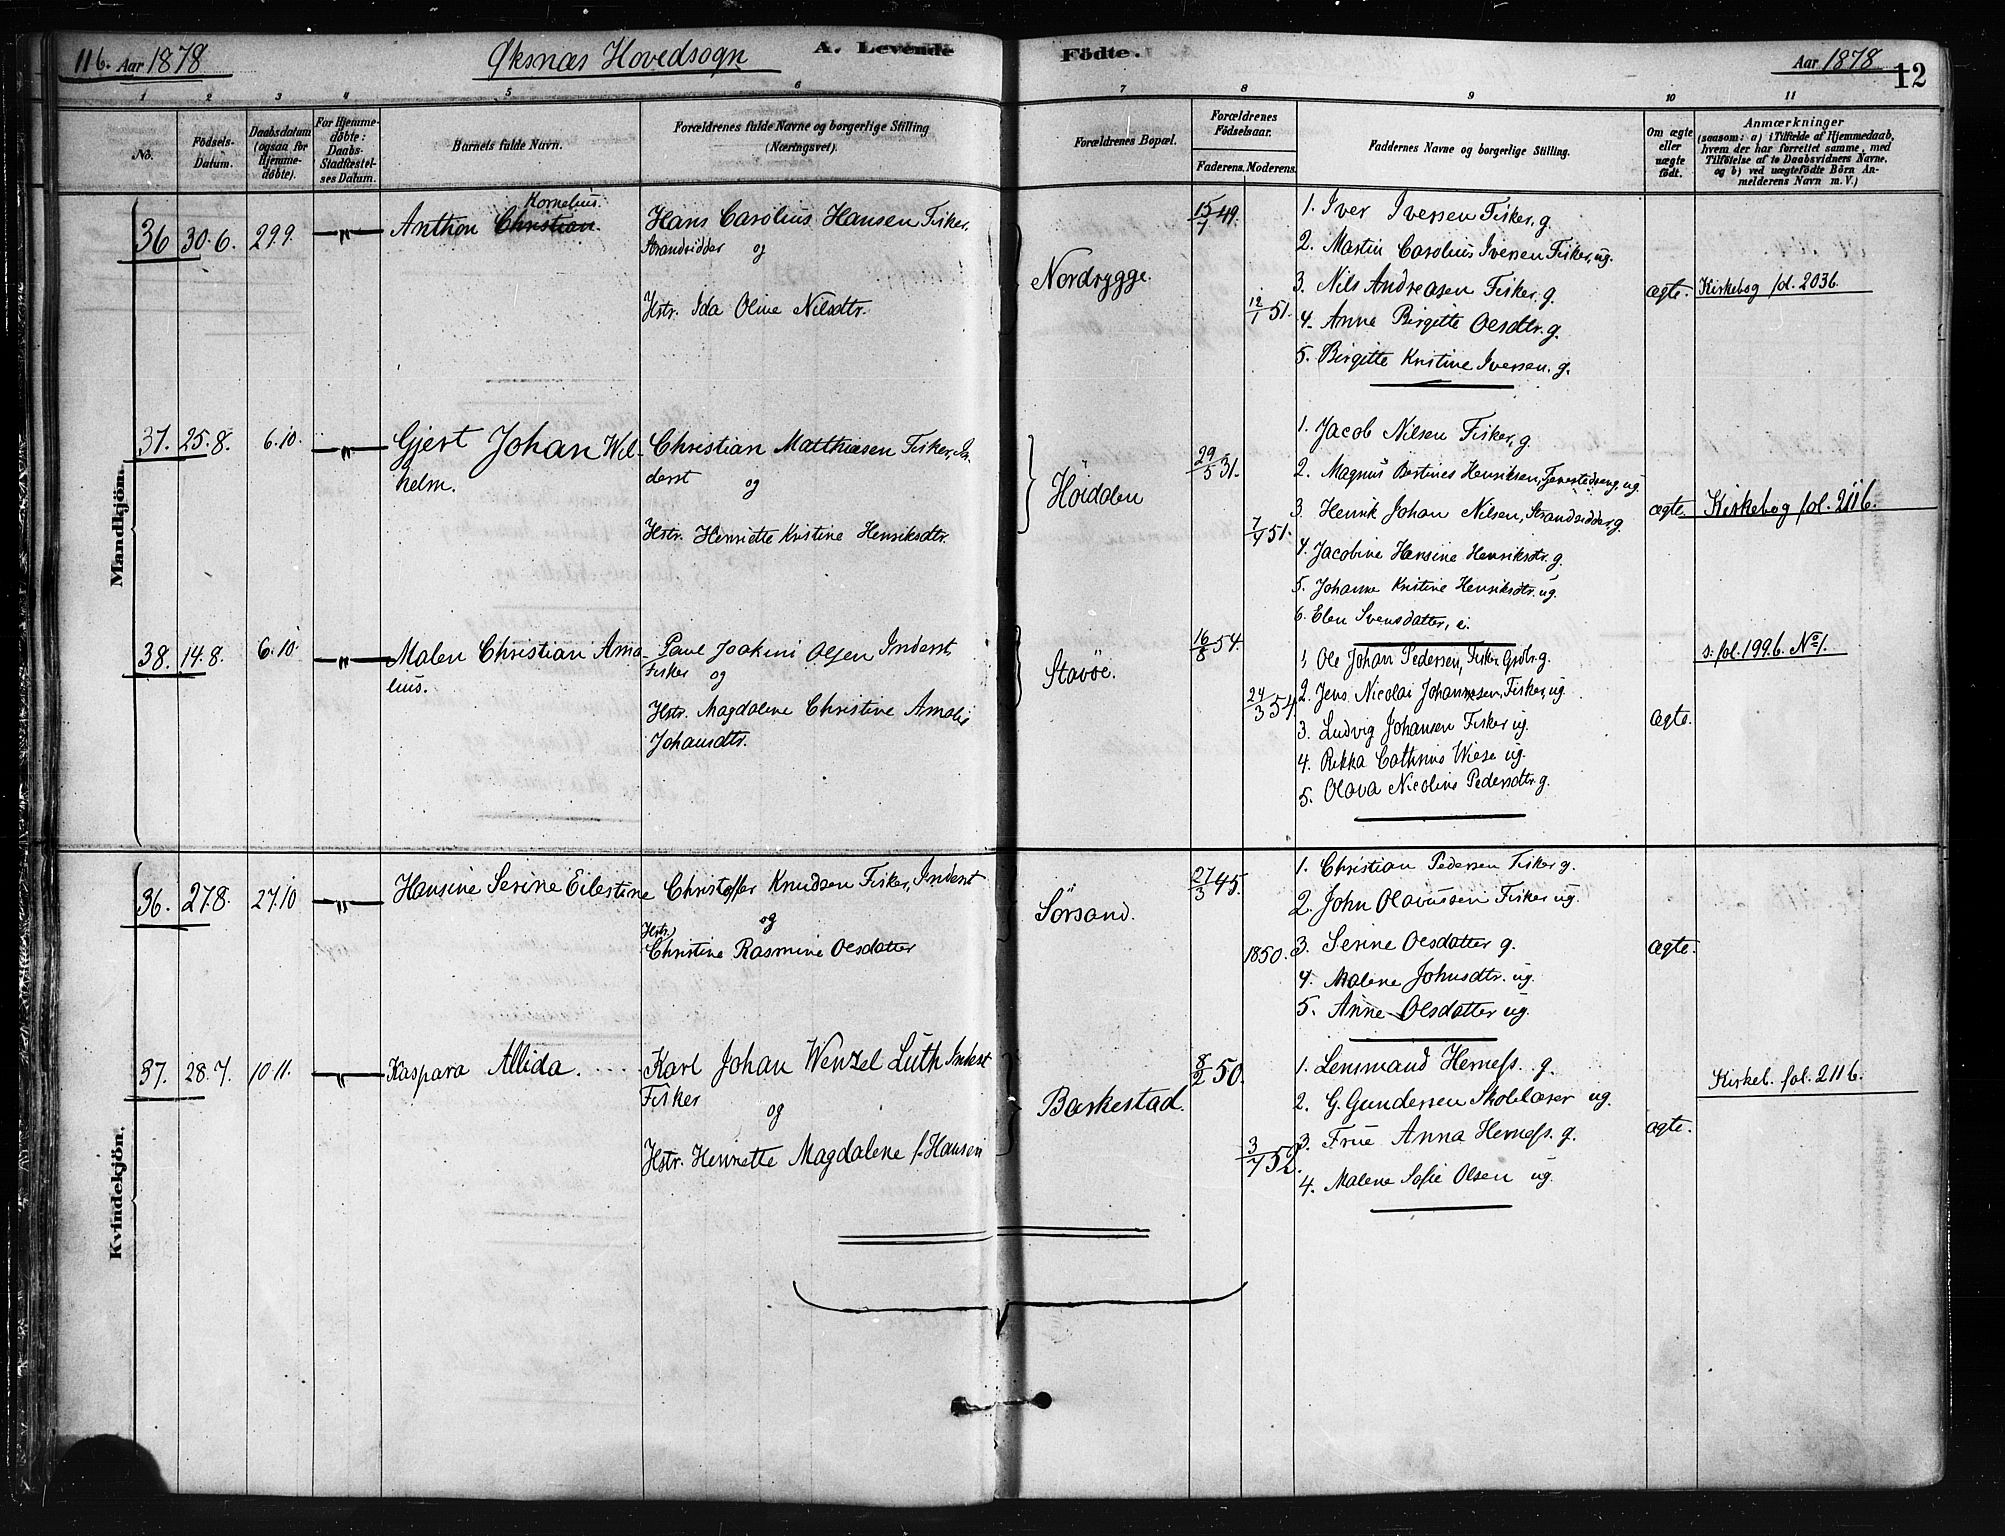 11b. Aar 1878
Øksnæs Hovedsogn
A. Levende Fødte.
Aar 1878
12
1 2 3 4 5 6 7 8 9 10 11
No.
Födsels-
Datum.
Daabsdatum
(ogsaa for
Hjemme-
döbte).
For Hjemme-
döbte:
Daabs-
Stadfæstel-
ses Datum.
Barnets fulde Navn.
Forældrenes fulde Navne og borgerlige Stilling
(Næringsvei).
Forældrenes Bopæl.
Forældrenes
Födselsaar.
Faderens. Moderens.
Faddernes Navne og borgerlige Stilling.
Om ægte
eller
uægte
födt.
Anmærkninger
(saasom: a) i Tilfælde af Hjemmedaab,
hvem der har forrettet samme, med
Tilföielse af to Daabsvidners Navne,
og b) ved uægtefödte Börn An-
melderens Navn m. V.)
Mandkjön.
36 30.6. 29.9. —"— Anthon Christian Kornelius.
Hans Carolius Hansen Fisker,
Strandsidder og
Hstr. Ida Oline Nilsdtr.
Nordrygge.
15/1 49.
12/1 51.
1. Iver Iversen Fisker, g.
2. Martin Carolius Iversen Fisker, ug.
3. Nils Andreasen Fisker g.
4. Anne Birgitte Oesdtr. g.
5. Birgitte Kristine Iversen. g.
ægte.
Kirkebog fol. 203b.
37. 25.8. 6.10. —"— Gjert Johan Wil-
helm.
Christian Matthiasen Fisker, In-
derst og
Hstr. Henriette Kristine Henriksdtr.
Höidden
29/5 31.
7/4 51.
1. Jacob Nilsen Fisker, g.
2. Magnus Bertines Henriksen, ug.
3. Henrik Johan Nilsen, Strandsidder g.
4. Jacobine Hansine Henriksdtr. g.
5. Johanne Kristine Henriksdtr. ug.
6. Elen Svensdatter, e.
ægte.
Kirkebog fol. 211b.
38. 14.8. 6.10. —"— Malen Christian Ama-
lius.
Paul Joakim Olsen Inderst
Fisker og
Hstr. Magdalene Christine Amalie
Johansdtr.
Stavöe.
16/8 54.
24/3 54.
1. Ole Johan Pedersen, Fisker Gdbr. g.
2. Jens Nicolai Johannesen, Fisker, ug.
3. Ludvig Johansen Fisker ug.
4. Rikka Cathrine Wiese ug.
5. Olava Nicoline Pedersdtr. g.
ægte.
s. fol. 199b. No 1.
Kvindekjön.
36. 27.8. 27.10 —"— Hansine Serine Eilestine
Christoffer Knudsen Fisker, Inderst
og
Hstr. Christine Rasmine Oesdatter
Sörsand.
27/3 45.
1850.
1. Christian Pedersen Fisker g.
2. John Olavussen Fisker ug.
3. Serine Oesdatter g.
4. Malene Johnsdtr. ug.
5. Anne Olsdatter ug.
ægte.
37. 28.7. 10.11. —"— Kaspara Allida.
Karl Johan Wenzel Luth Inderst
Fisker og
Hstr. Henriette Magdalene f. Hansen
Barkestad.
8/2 50.
3/7 52.
1. Lensmand Herness. g.
2. G. Gundersen Skolelærer ug.
3. Frue Anna Herness. g.
4. Malene Sofie Olsen ug.
ægte.
Kirkeb. fol. 211b.